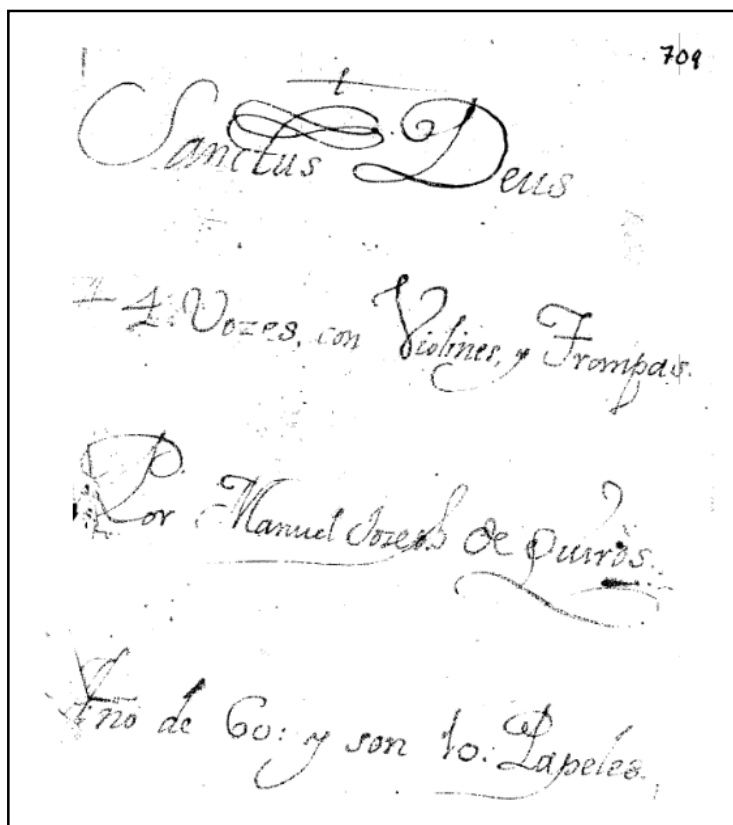 709
Sanctus Deus
A 4. Vozes, con Violines, y Trompas.
Por Manuel Joseph de Quiròs.
Año de 60: y son 10. Papeles.